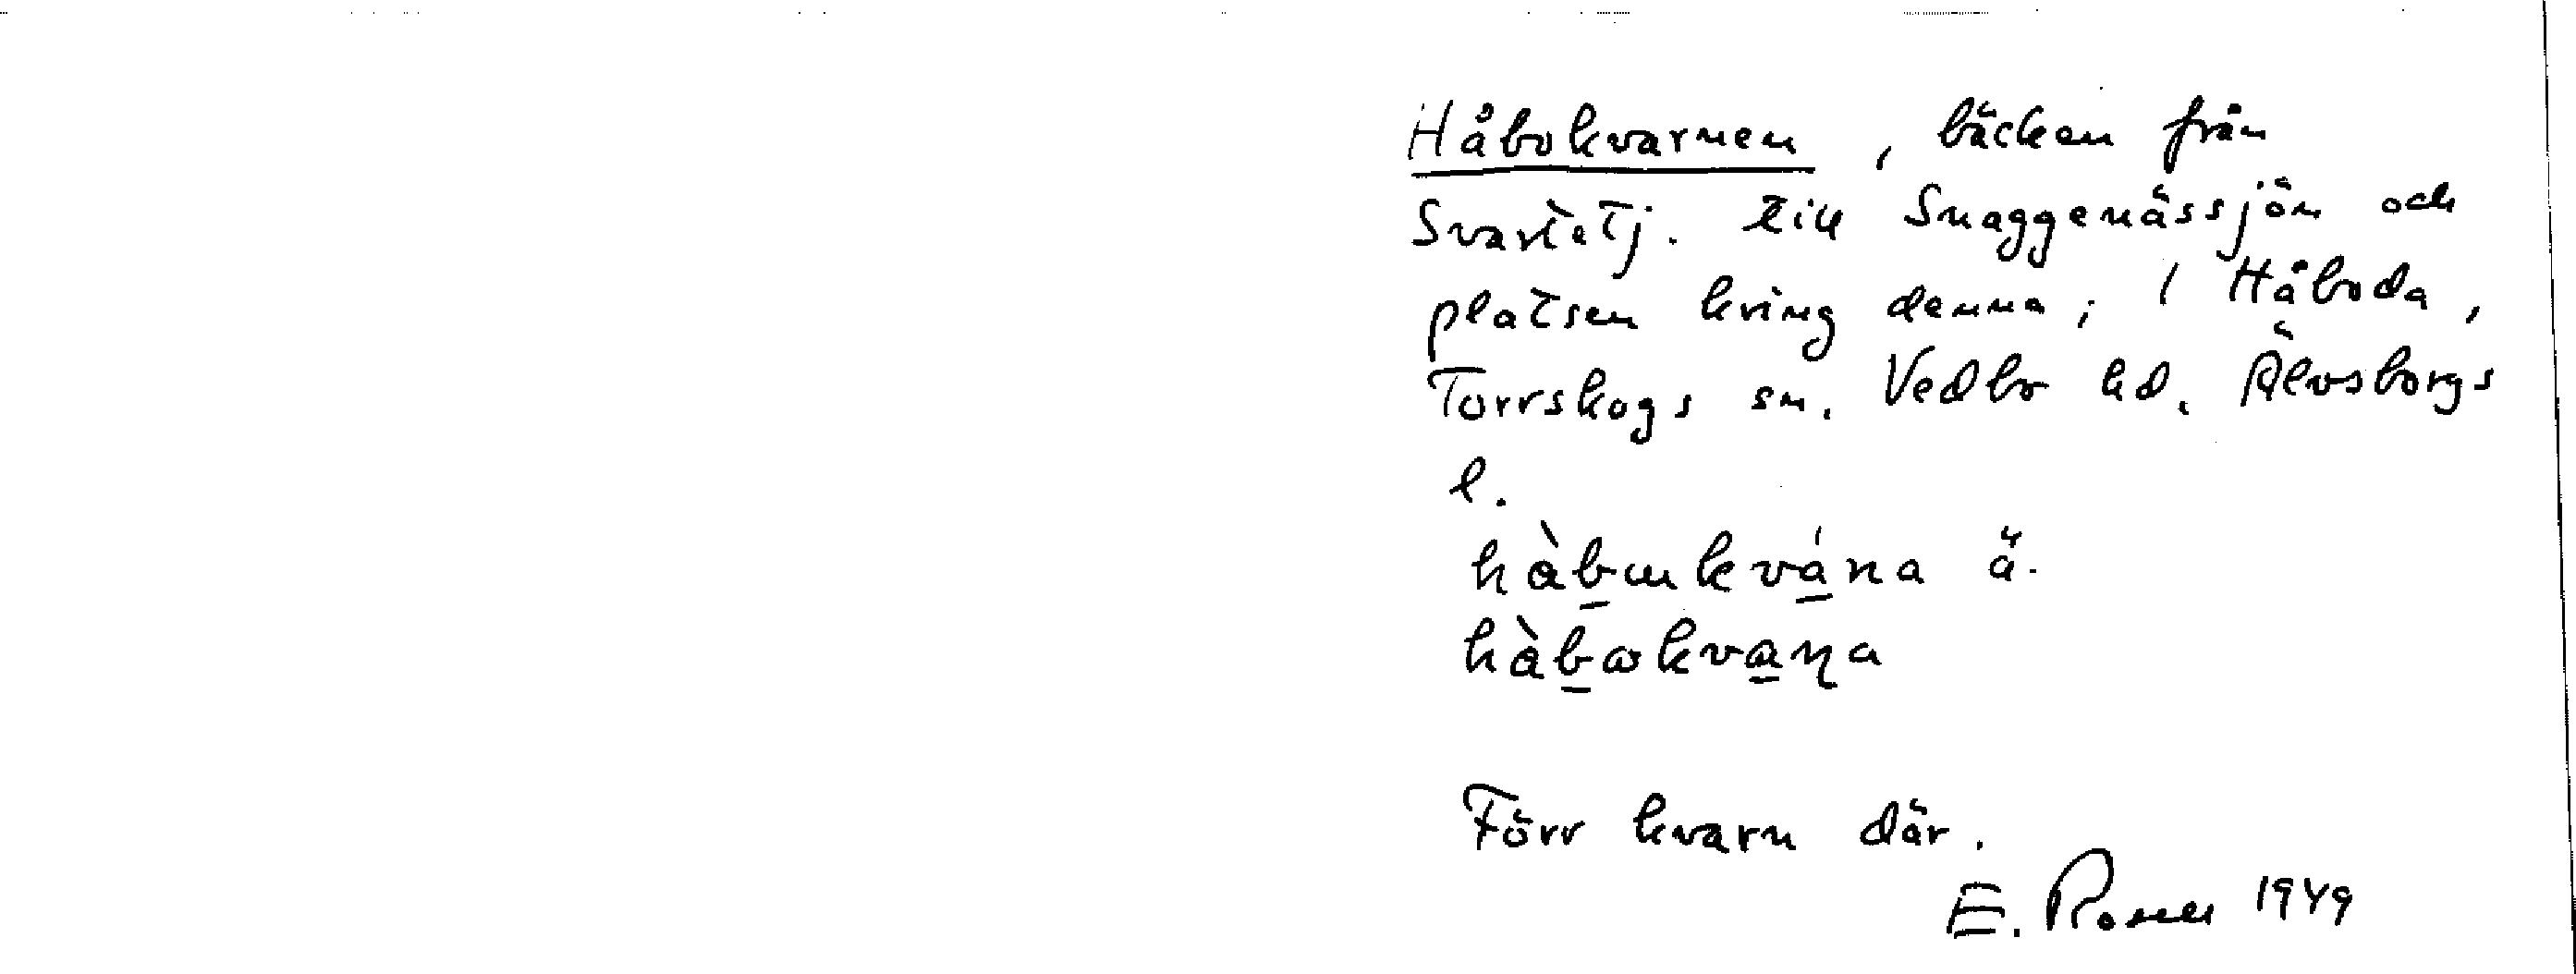 Håbokvarnen, bäcken från
Svartetj. till Snaggenässjön och
platsen kring denna; i Håboda,
Torrskogs sn. Vedbo hd. Älvsborgs
l.
hàbɯkvána ä.
hàbωkvaɳa
Förr kvarn där.
E. Rosen 1949